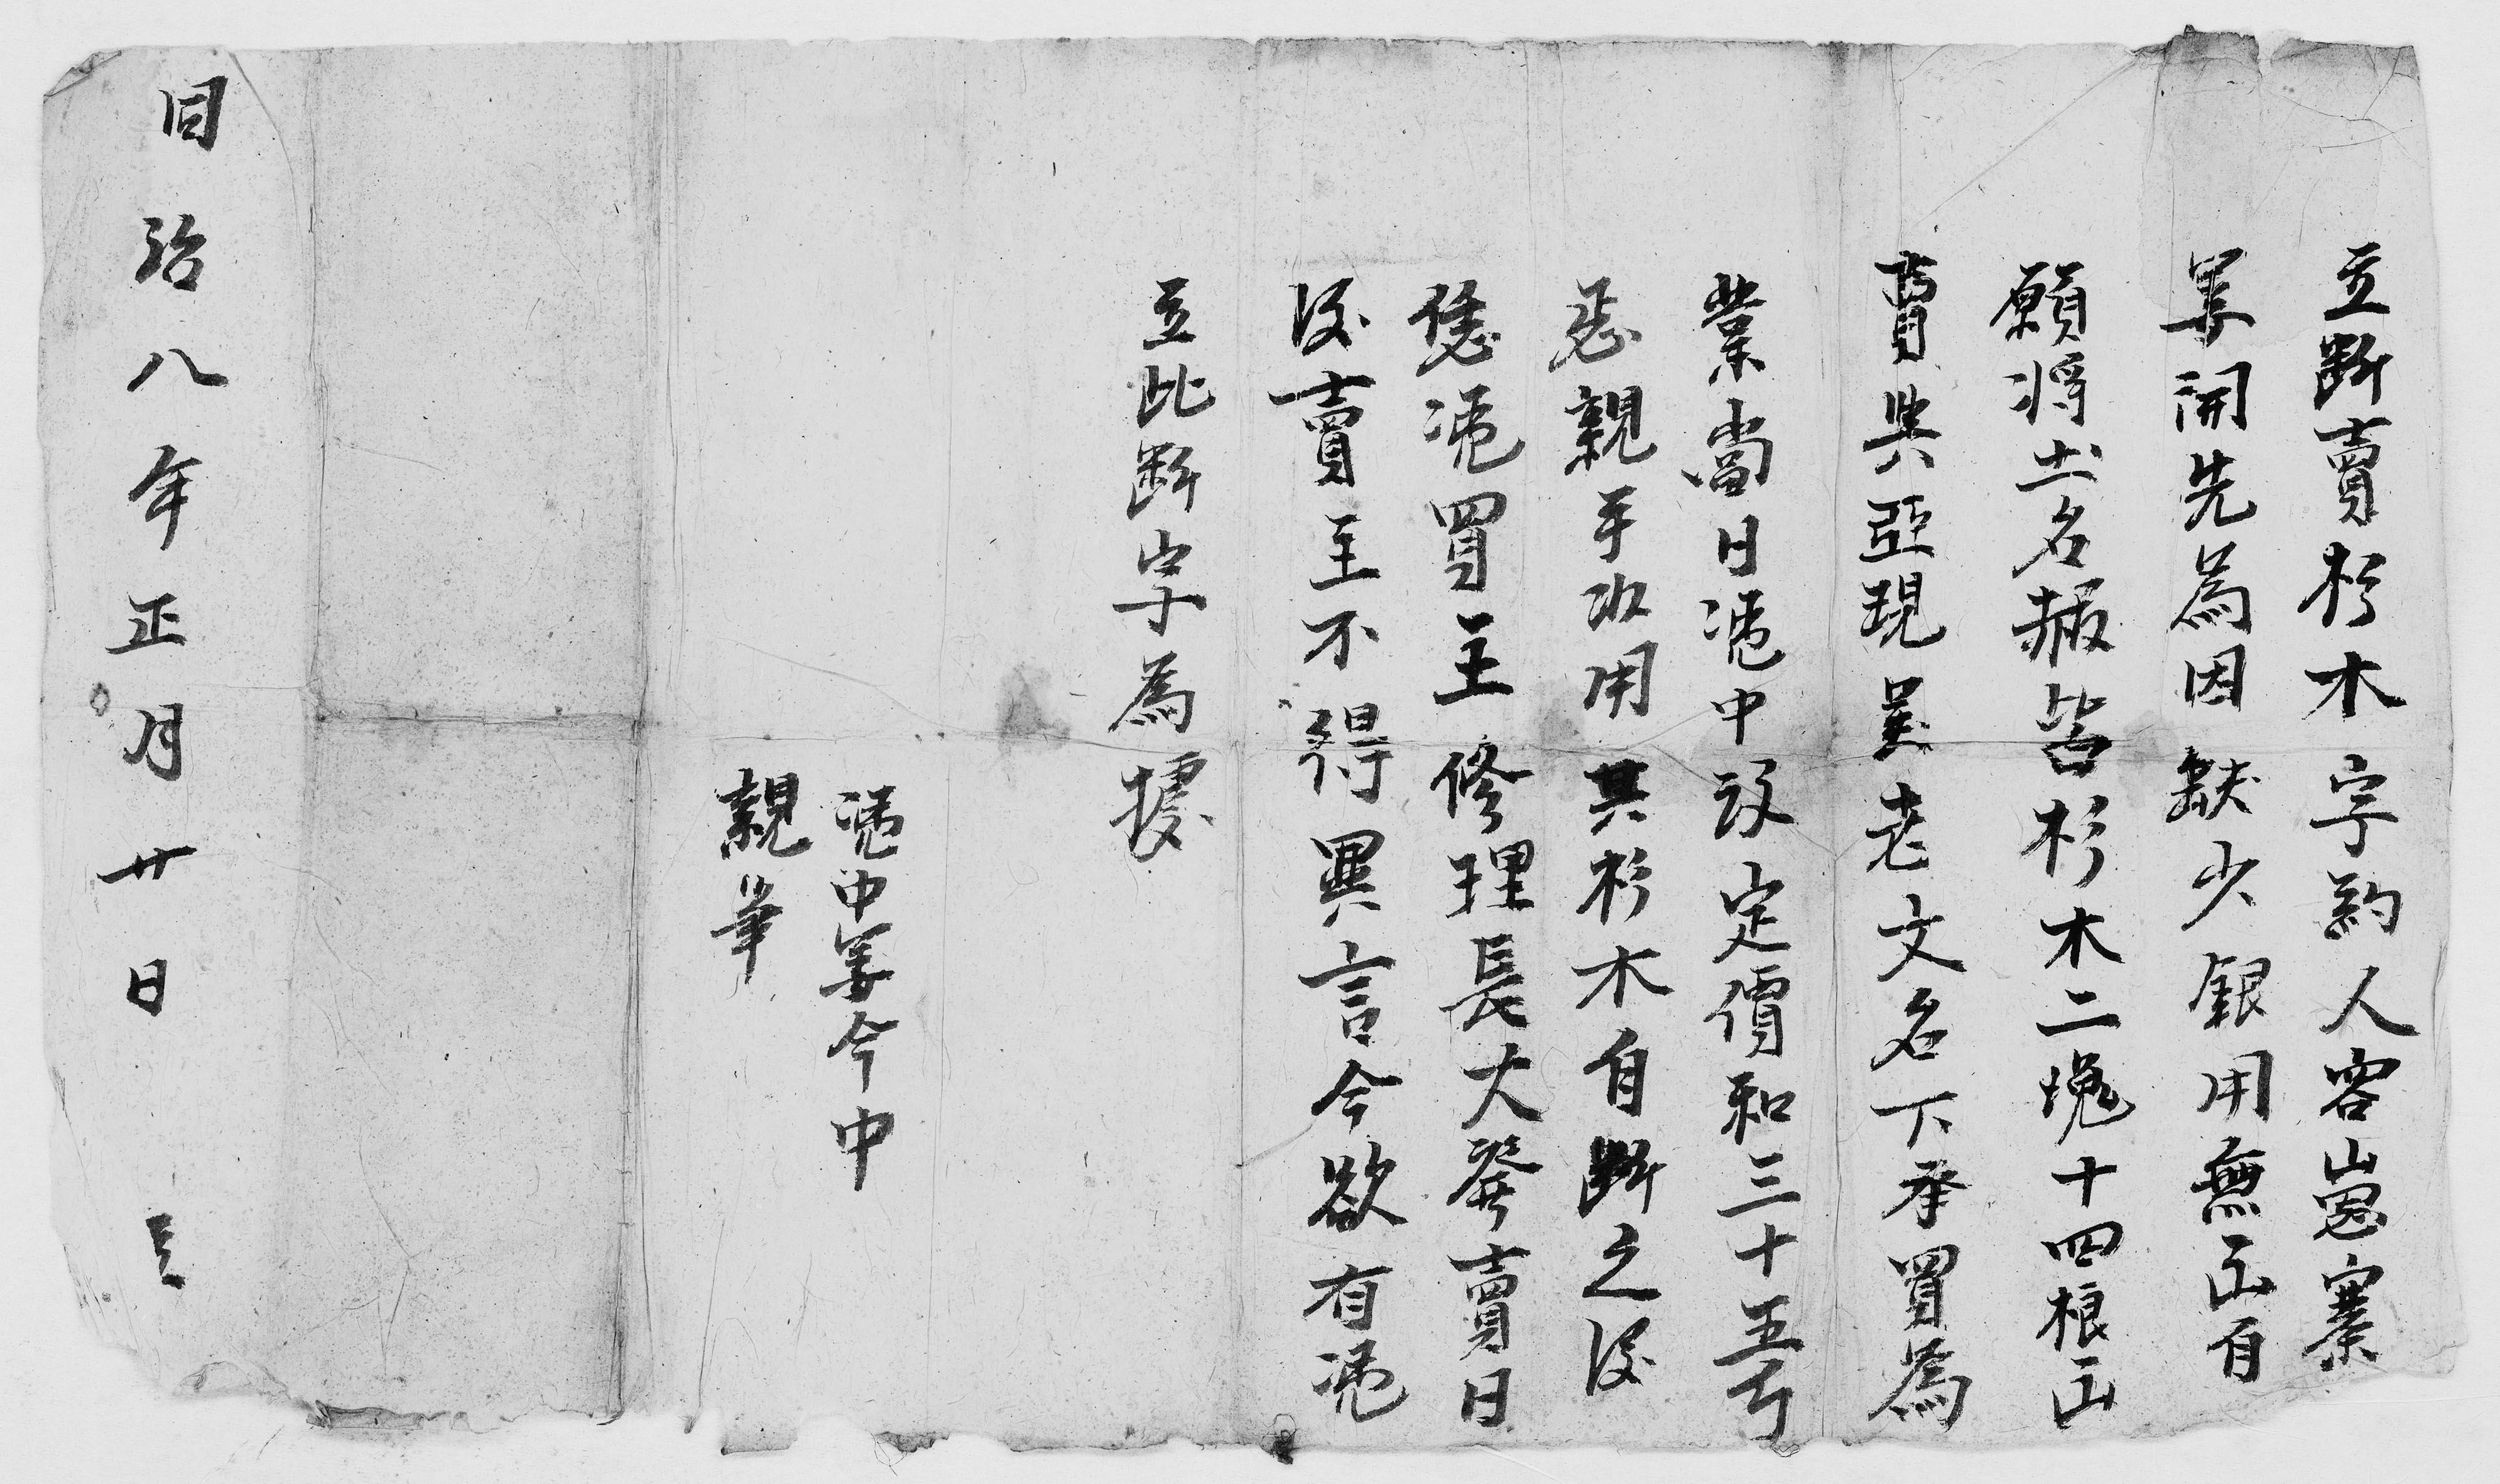 立斷賣杉木字約人容嵩寨
姜開先為因缺少銀用無出自
願將土名赧笞杉木二塊十四根出
賣與亞現寨老文名下承買為
業當日凴中議定價和三十五千
愿親手收用其杉木自斷之後
恁凴買主修理長大發賣日
後賣主不得異言今欲有凴
立此斷字為據
凴中姜今中
親筆
同治八年正月廿日 立